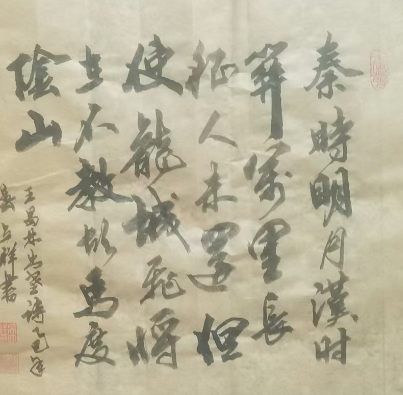 秦時明月漢时
關萬里長
征人未還但
使龍城飛將
在不教胡馬度
陰山
王昌龄出塞诗乙
祥書